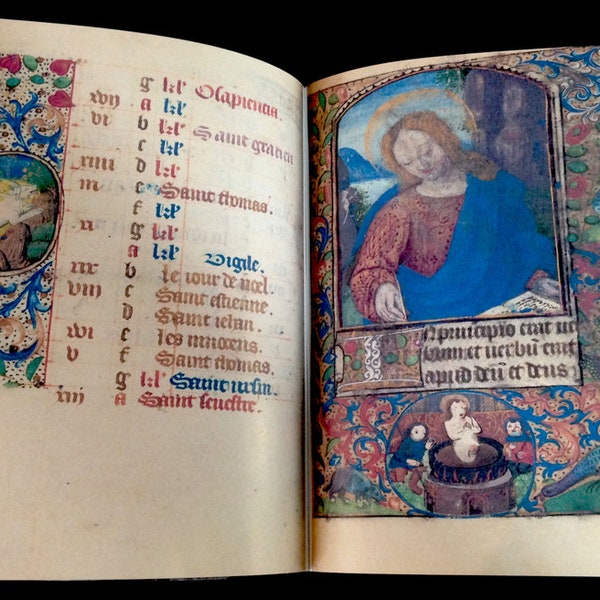 g kl' Osapiencia.
xvij a kl'
vi b kl' Saint gracien
c kl'
xiiii d kl'
iii e kl' Sainct thomas.
f kl'
xi g kl'
a kl' Vigile.
xix b le iour de noel.
viii c Saint estienne.
d Saint iehan.
xvi e les innocens.
v f Saint thomas.
g kl' Saint ursin.
xiii a Saint seuestre.
IN principio erat uer
bum et uerbū erat
apud deū et deus